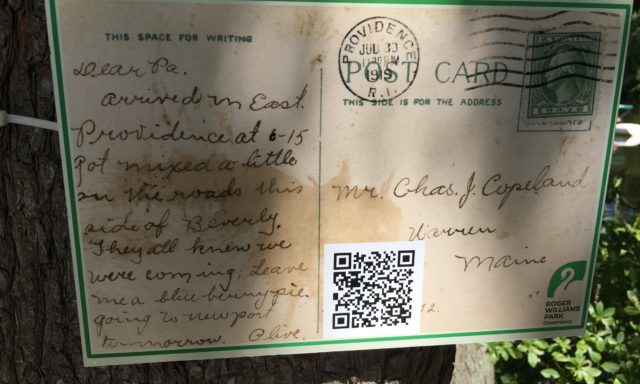 THIS SPACE FOR WRITING
Dear Pa.
arrived in East
Providence at 6-15
Got mixed a little
on the roads this
side of Beverly.
They all knew we
were coming; Leave
me a blueberry pie.
going to newport
tomorrow. Olive.
PROVIDENCE
JUL 30
R.I.
POST CARD
THIS SIDE IS FOR THE ADDRESS
Mr. Chas. J. Copeland
Warren
Maine
12.
ROGER
WILLIAMS
PARK
Conservancy